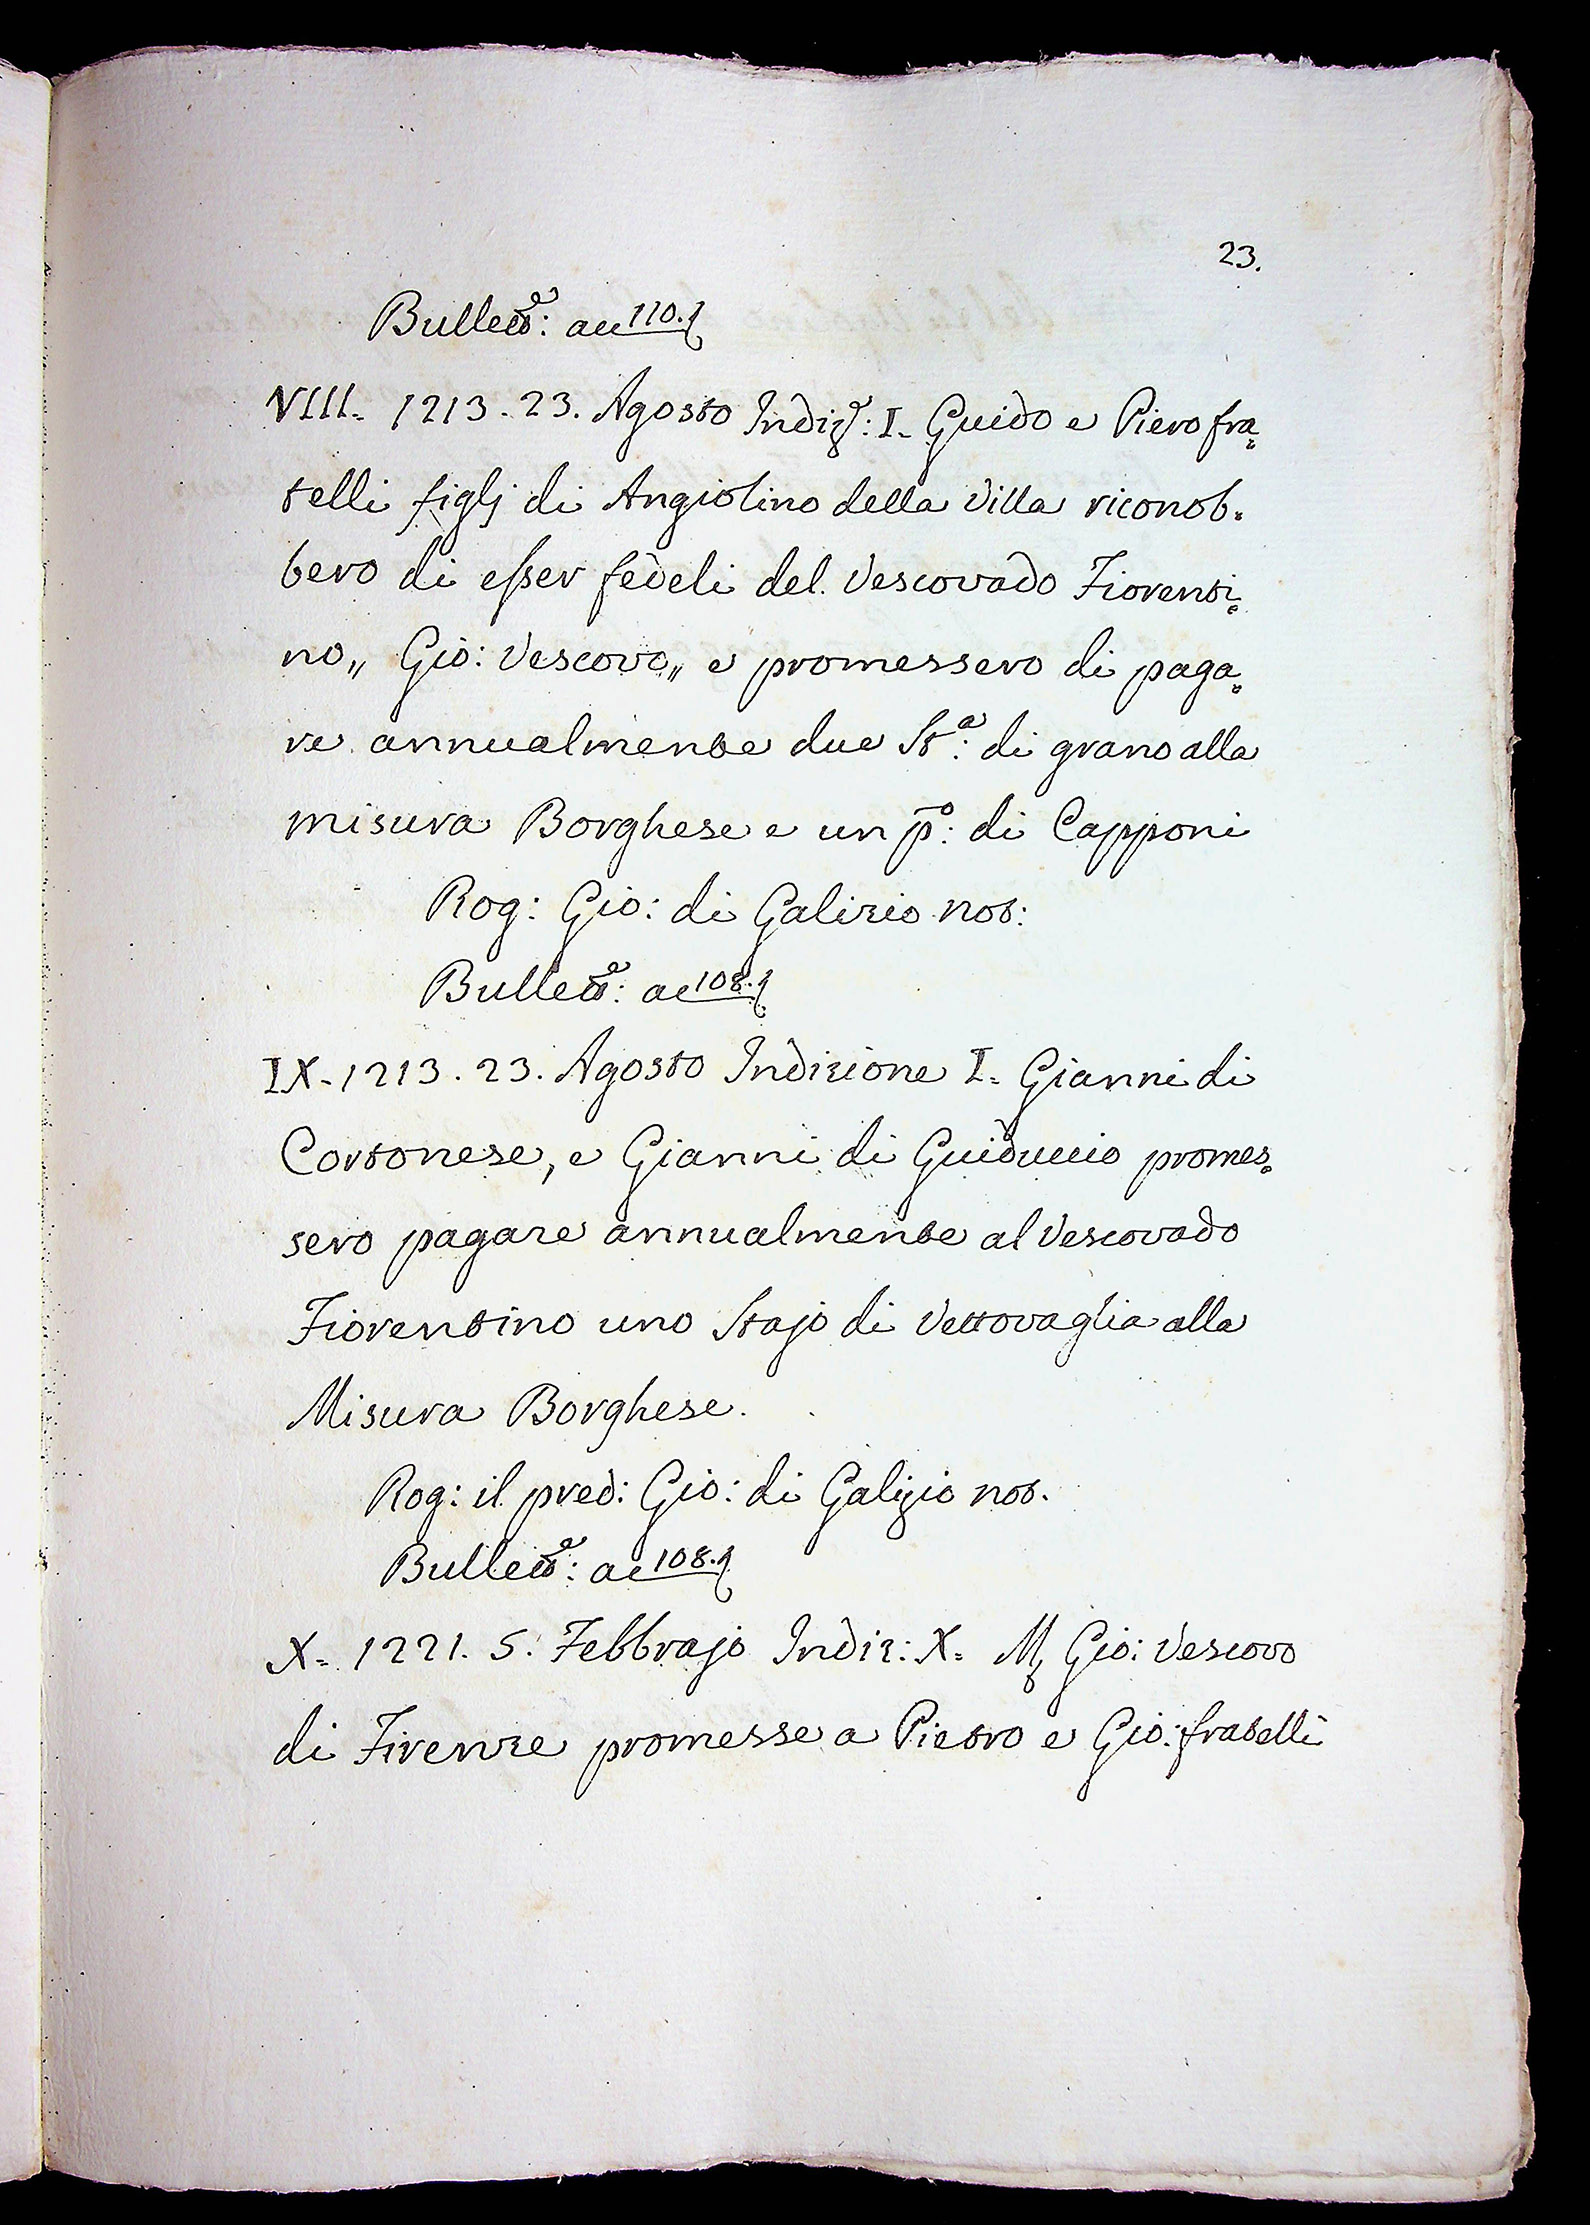 23.
Bullett.e: ac 110.
VIII. 1213. 23. Agosto Indiz.e: I. Guido e Piero fra=
telli figlj di Angiolino della Villa riconob=
bero di esser fedeli del Vescovado Fiorenti=
no,, Gio: Vescovo,, e promessero di paga=
re annualmente due St.a: di grano alla
misura Borghese e un p.o: di Capponi
Rog: Gio: di Galizio not:
Bullett.e: ac 108.
IX. 1213. 23. Agosto Indizione I. Gianni di
Cortonese, e Gianni di Guiduccio promes=
sero pagare annualmente al Vescovado
Fiorentino uno Stajo di Vettovaglia alla
Misura Borghese.
Rog: il pred: Gio: di Galizio not.
Bullett.e: ac 108.
X. 1221. 5. Febbrajo Indiz: X. M. Gio: Vescovo
di Firenze promesse a Pietro e Gio: fratelli